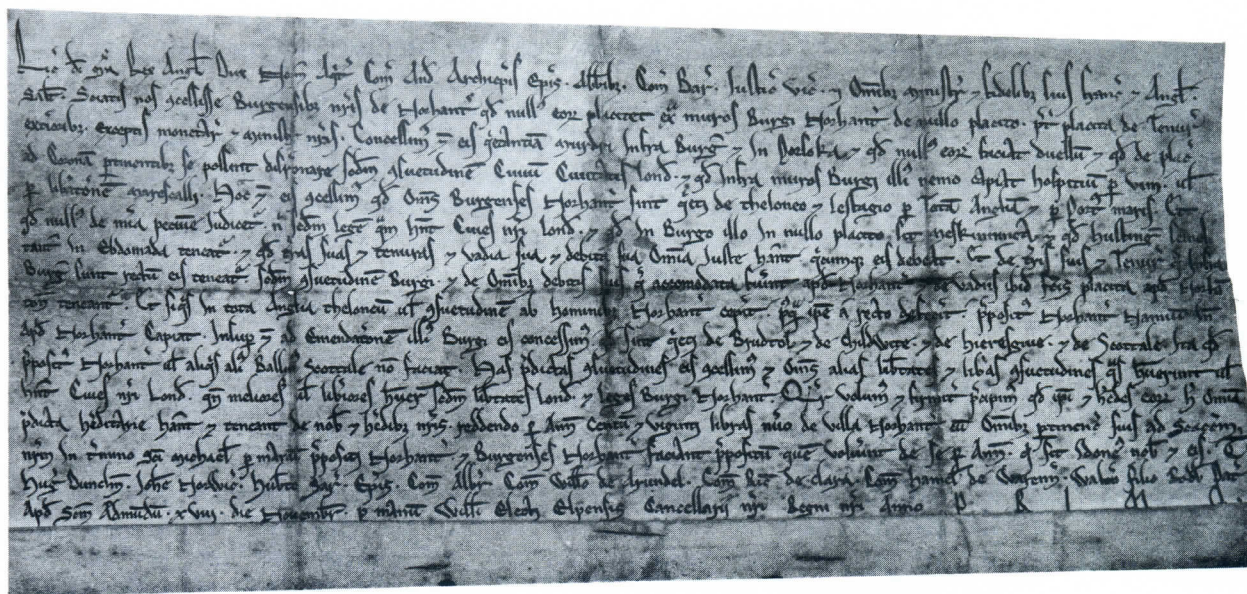 Ric̄ dī gr̄a Rex Angl̄. Dux Norm̄. Aq̄t̄. Com̄ And̄. Archiep̄is Ep̄is. Abb̄ibȝ. Com̄. Bar̄. Justic̄. Vic̄. ⁊ Om̄ibȝ ministr̄. ⁊ fidelibȝ suis Franc̄. ⁊ Angl̄.
Sal̄t. Sciatis nos ꝯcessisse Burgensibȝ nr̄is de Norhant̄ qd̄ null̄s eoꝝ placitet ext̄ muros Burgi Norhant̄ de nullo placito. p̄t̄ placita de Tenur̄
ext̄ioribȝ. Exceptis monetar̄ ⁊ ministr̄ nr̄is. Concessim̄ ⁊ eis q̄etantiā murdri Infra Burgū ⁊ In Porsoka. ⁊ qd̄ null̄s eoꝝ faciat duellū ⁊ qd̄ de plac̄
ad Coronā p̄tinentibȝ se possint disr̄onare sc̄dm ꝯsuetudinē Civiū Civitatis Lond̄. ⁊ qd̄ Infra muros Burgi illi nemo capiat hospitiū p̄ vim. vl̄
p̄ lib̄ationē Marescalli. Hoc ⁊ eis ꝯcessim̄ qd̄ Om̄s Burgenses Norhant̄ sint q̄eti de theloneo ⁊ lestagio p̄ Totā Angliā ⁊ p̄ Port̄ maris. Et
qd̄ null̄s de mīa pecunie Judicet̄ n̄ sc̄dm legē q̄m hn̄t Cives nr̄i Lond̄. ⁊ qd̄ In Burgo illo In nullo placito sit Meskenninga ⁊ qd̄ Husting semel
tantū In Ebdomada teneat̄. ⁊ qd̄ t̄ras suas ⁊ tenuras ⁊ vadia sua ⁊ debita sua Om̄ia Juste hēant q̄cumqȝ eis debeat. Et de t̄ris suis ⁊ Tenur̄ q̄ Infra
Burgū sunt rectū eis teneat̄. sc̄dm ꝯsuetudinē Burgi. ⁊ de Om̄ibȝ debitis suis q̄ accomodata fuerint apd̄ Norhant̄ ⁊ de vadiis ibid̄ fc̄is placita apd̄ Norhā
ton̄ teneant̄. Et siq̄s In tota Anglia theloneū vl̄ ꝯsuetudinē ab hominibȝ Norhant̄ cep̄it. postq̄ ip̄e a recto defec̄it. p̄posit̄ Norhant̄ Namiū In̄
apd̄ Norhant̄ Capiat. Insup̄ ⁊ ad Emendationē illi Burgi eis concessim̄ qd̄ sint q̄eti de Brudtol ⁊ de Childwite. ⁊ de hieresgive. ⁊ de Scottale. Ita qd̄
p̄posit̄ Norhant̄ vl̄ aliq̄s ali Ballīs Scottale nō faciat. Has p̄dictas ꝯsuetudines eis ꝯcessim̄ ⁊ Om̄s alias lib̄tates ⁊ lib̄as ꝯsuetudines q̄s habuerunt vl̄
hn̄t Cives nr̄i Lond̄. qn̄ meliores vl̄ lib̄iores hūer̄ sc̄dm lib̄tates Lond̄. ⁊ leges Burgi Norhant̄. Qr̄ volum̄ ⁊ firmit̄ p̄cipim̄ qd̄ ip̄i ⁊ h̄edes eoꝝ h̄ Om̄ia
p̄dicta h̄editarie hēant ⁊ teneant de nob̄ ⁊ h̄edibȝ nr̄is. reddendo p̄ Ann̄. Centū ⁊ viginti libras num̄o de villa Norhant̄ cū Om̄ibȝ p̄tinenc̄ suis ad Scacm̄
nr̄m In t̄mino Sc̄i Michael̄ p̄ manū p̄positi Norhant̄. ⁊ Burgenses Norhant̄ faciant p̄positū quē voluerint de se p̄ Ann̄. q̄ sit Idoneus nob̄ ⁊ eis. T̄
Huḡ Dunelm̄. Joh̄e Norwic̄. Hub̄to Sar̄. Ep̄is. Com̄ Alb̄r̄. Com̄ Will̄o de Arundel. Com̄ Ric̄ de Clara. Com̄ Hamel̄ de Warenn̄. Walt̄o filio Rob̄ti.
Apd̄ Sc̄m Admūdū. xviij. die Novembr̄. p̄ manū Will̄i Electi Elyensis Cancellarij nr̄i. Regni nr̄i Anno P R I M O